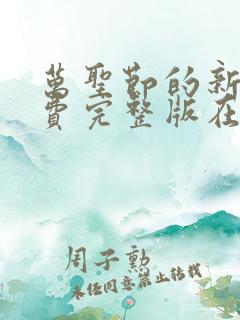 萬聖節的新
費完整版在
周子勲
未經同意禁止轉載